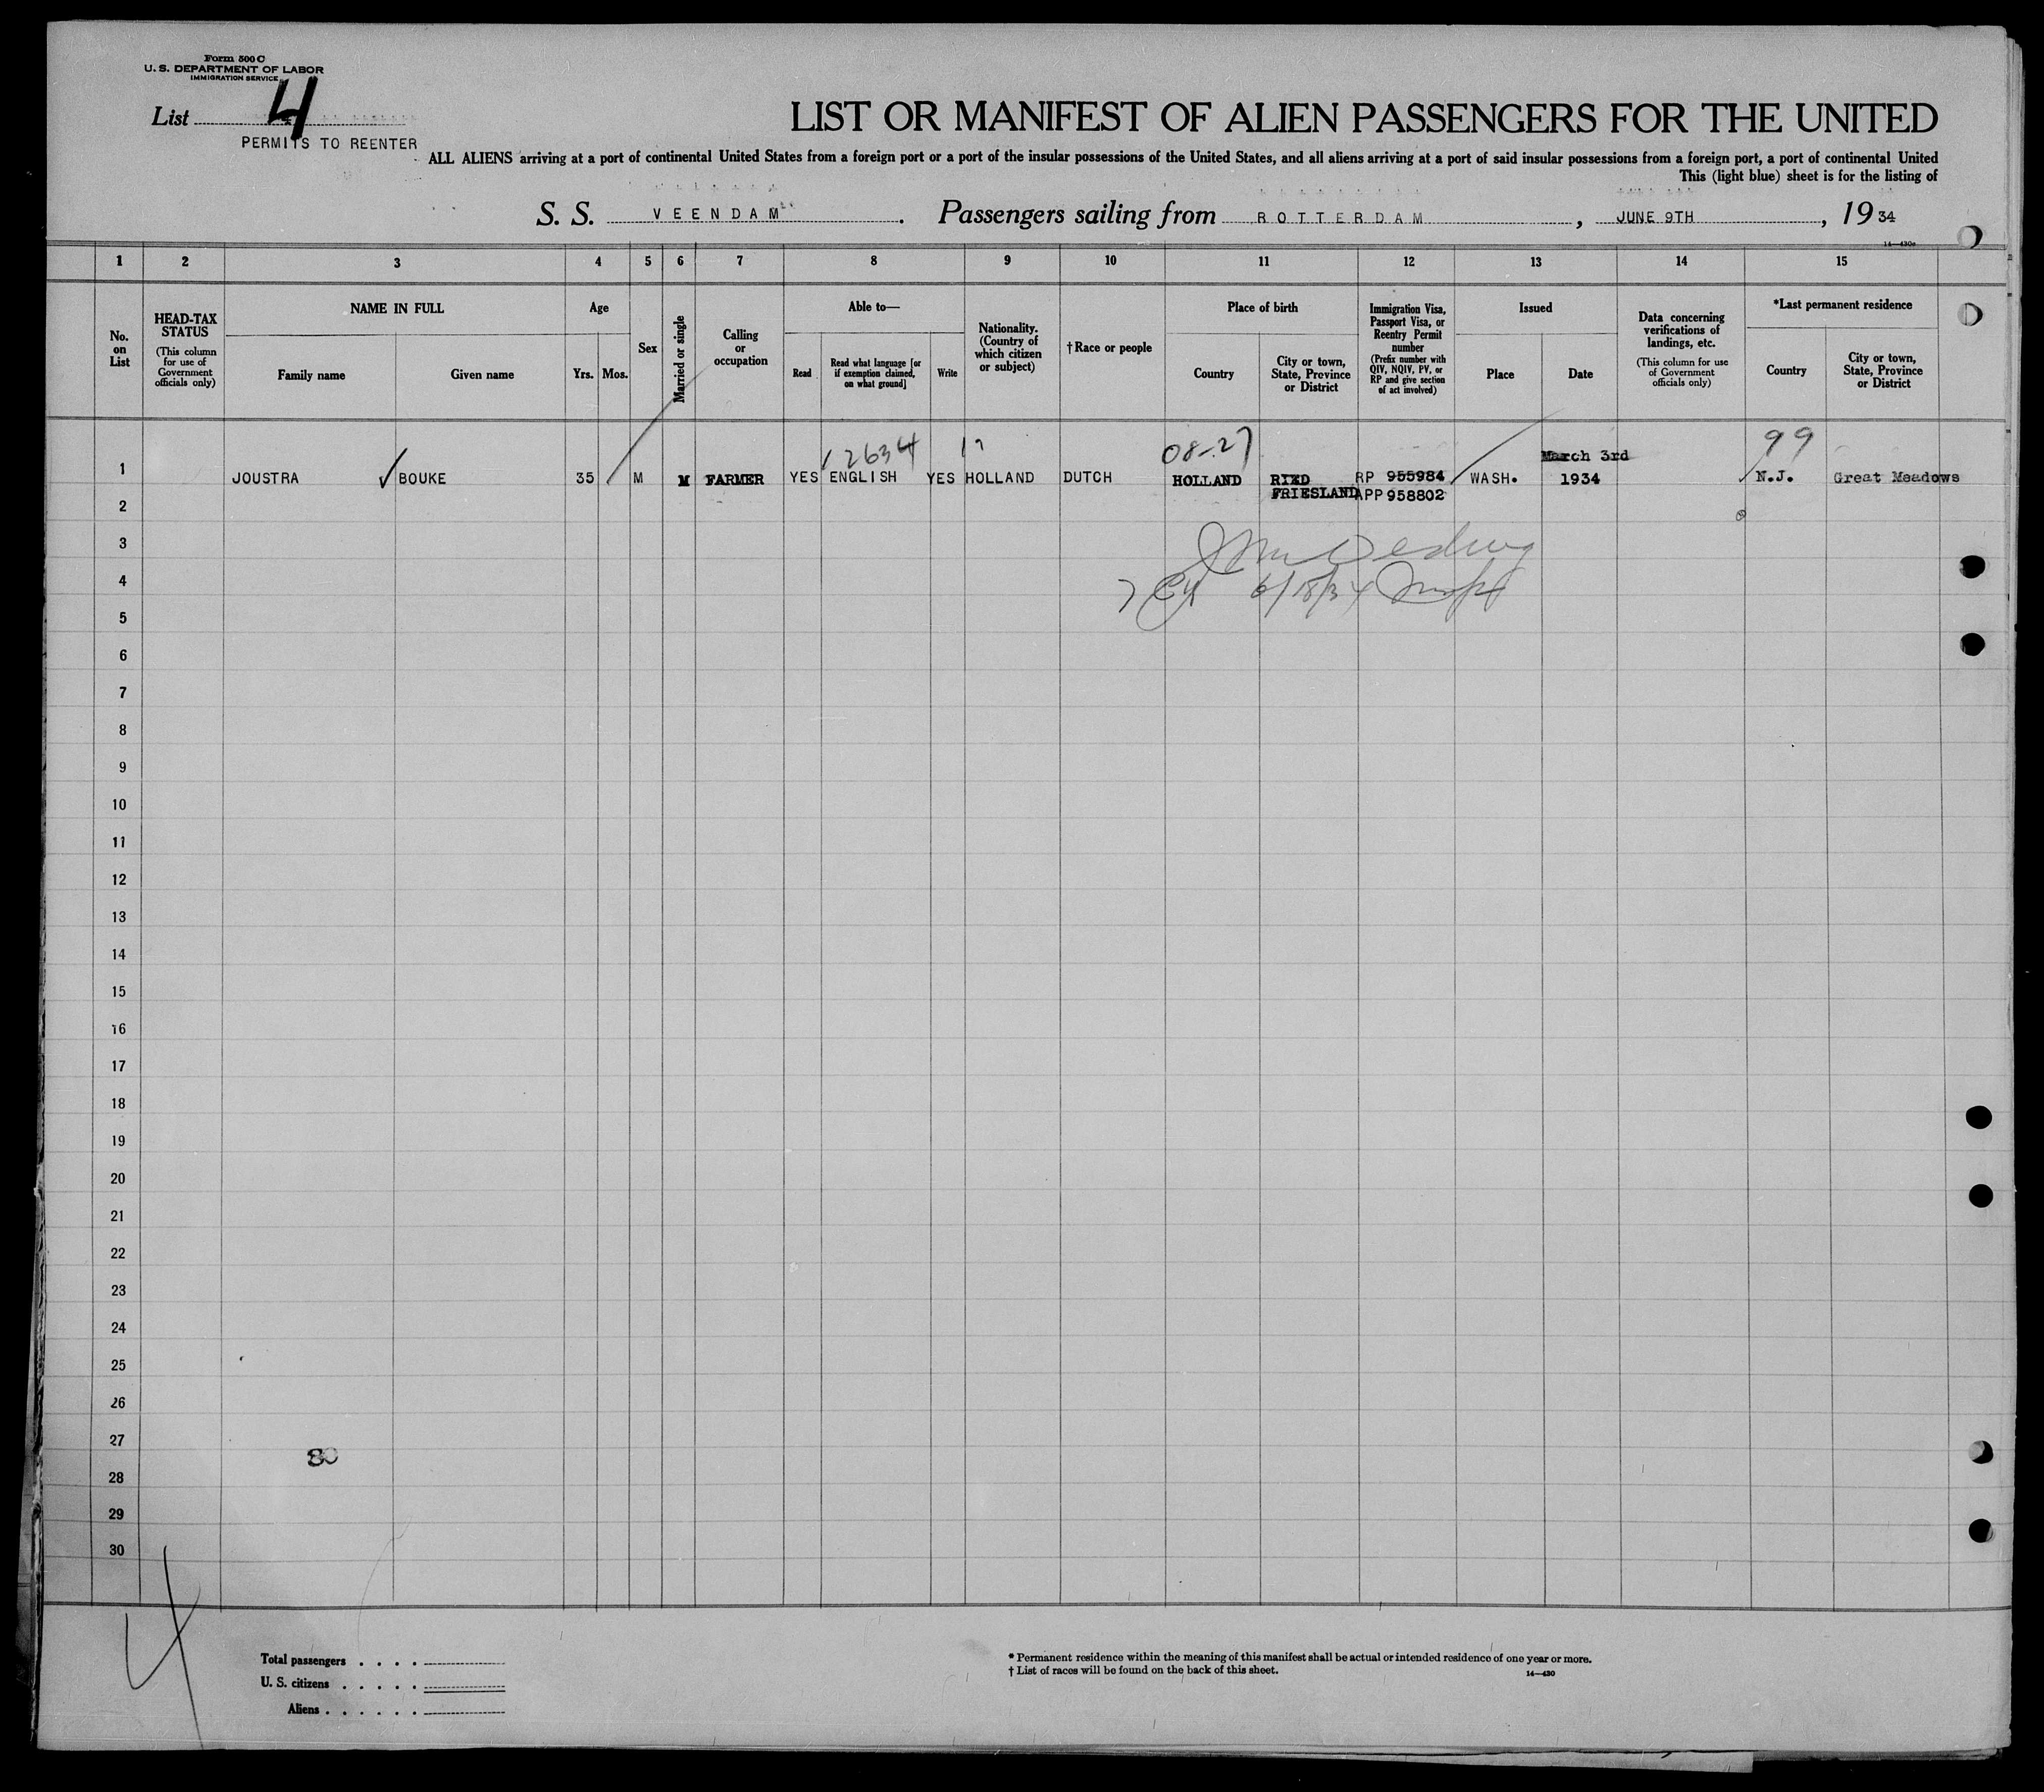 Form 500 C
U. S. DEPARTMENT OF LABOR
IMMIGRATION SERVICE
List 4
PERMITS TO REENTER
LIST OR MANIFEST OF ALIEN PASSENGERS FOR THE UNITED
ALL ALIENS arriving at a port of continental United States from a foreign port or a port of the insular possessions of the United States, and all aliens arriving at a port of said insular possessions from a foreign port, a port of continental United
This (light blue) sheet is for the listing of
S. S. VEENDAM. Passengers sailing from ROTTERDAM, JUNE 9TH, 1934
14—430a
1 2 3 4 5 6 7 8 9 10 11 12 13 14 15
No. on List
HEAD-TAX STATUS
(This column for use of Government officials only)
NAME IN FULL
Family name
Given name
Age
Yrs.
Mos.
Sex
Married or single
Calling or occupation
Able to—
Read
Read what language [or if exemption claimed, on what ground]
Write
Nationality. (Country of which citizen or subject)
†Race or people
Place of birth
Country
City or town, State, Province or District
Immigration Visa, Passport Visa, or Reentry Permit number
(Prefix number with QIV, NQIV, PV, or RP and give section of act involved)
Issued
Place
Date
Data concerning verifications of landings, etc.
(This column for use of Government officials only)
*Last permanent residence
Country
City or town, State, Province or District
12634
08-27
March 3rd
99
1 JOUSTRA ✓ BOUKE 35 M M FARMER YES ENGLISH YES HOLLAND DUTCH HOLLAND RIED RP 955984 WASH. 1934 N.J. Great Meadows
FRIESLAND APP 958802
2
3
4
6/18/34
5
6
7
8
9
10
11
12
13
14
15
16
17
18
19
20
21
22
23
24
25
26
27
80
28
29
30
4
Total passengers . . . .
U. S. citizens . . . . .
Aliens . . . . . .
* Permanent residence within the meaning of this manifest shall be actual or intended residence of one year or more.
† List of races will be found on the back of this sheet.
14—430